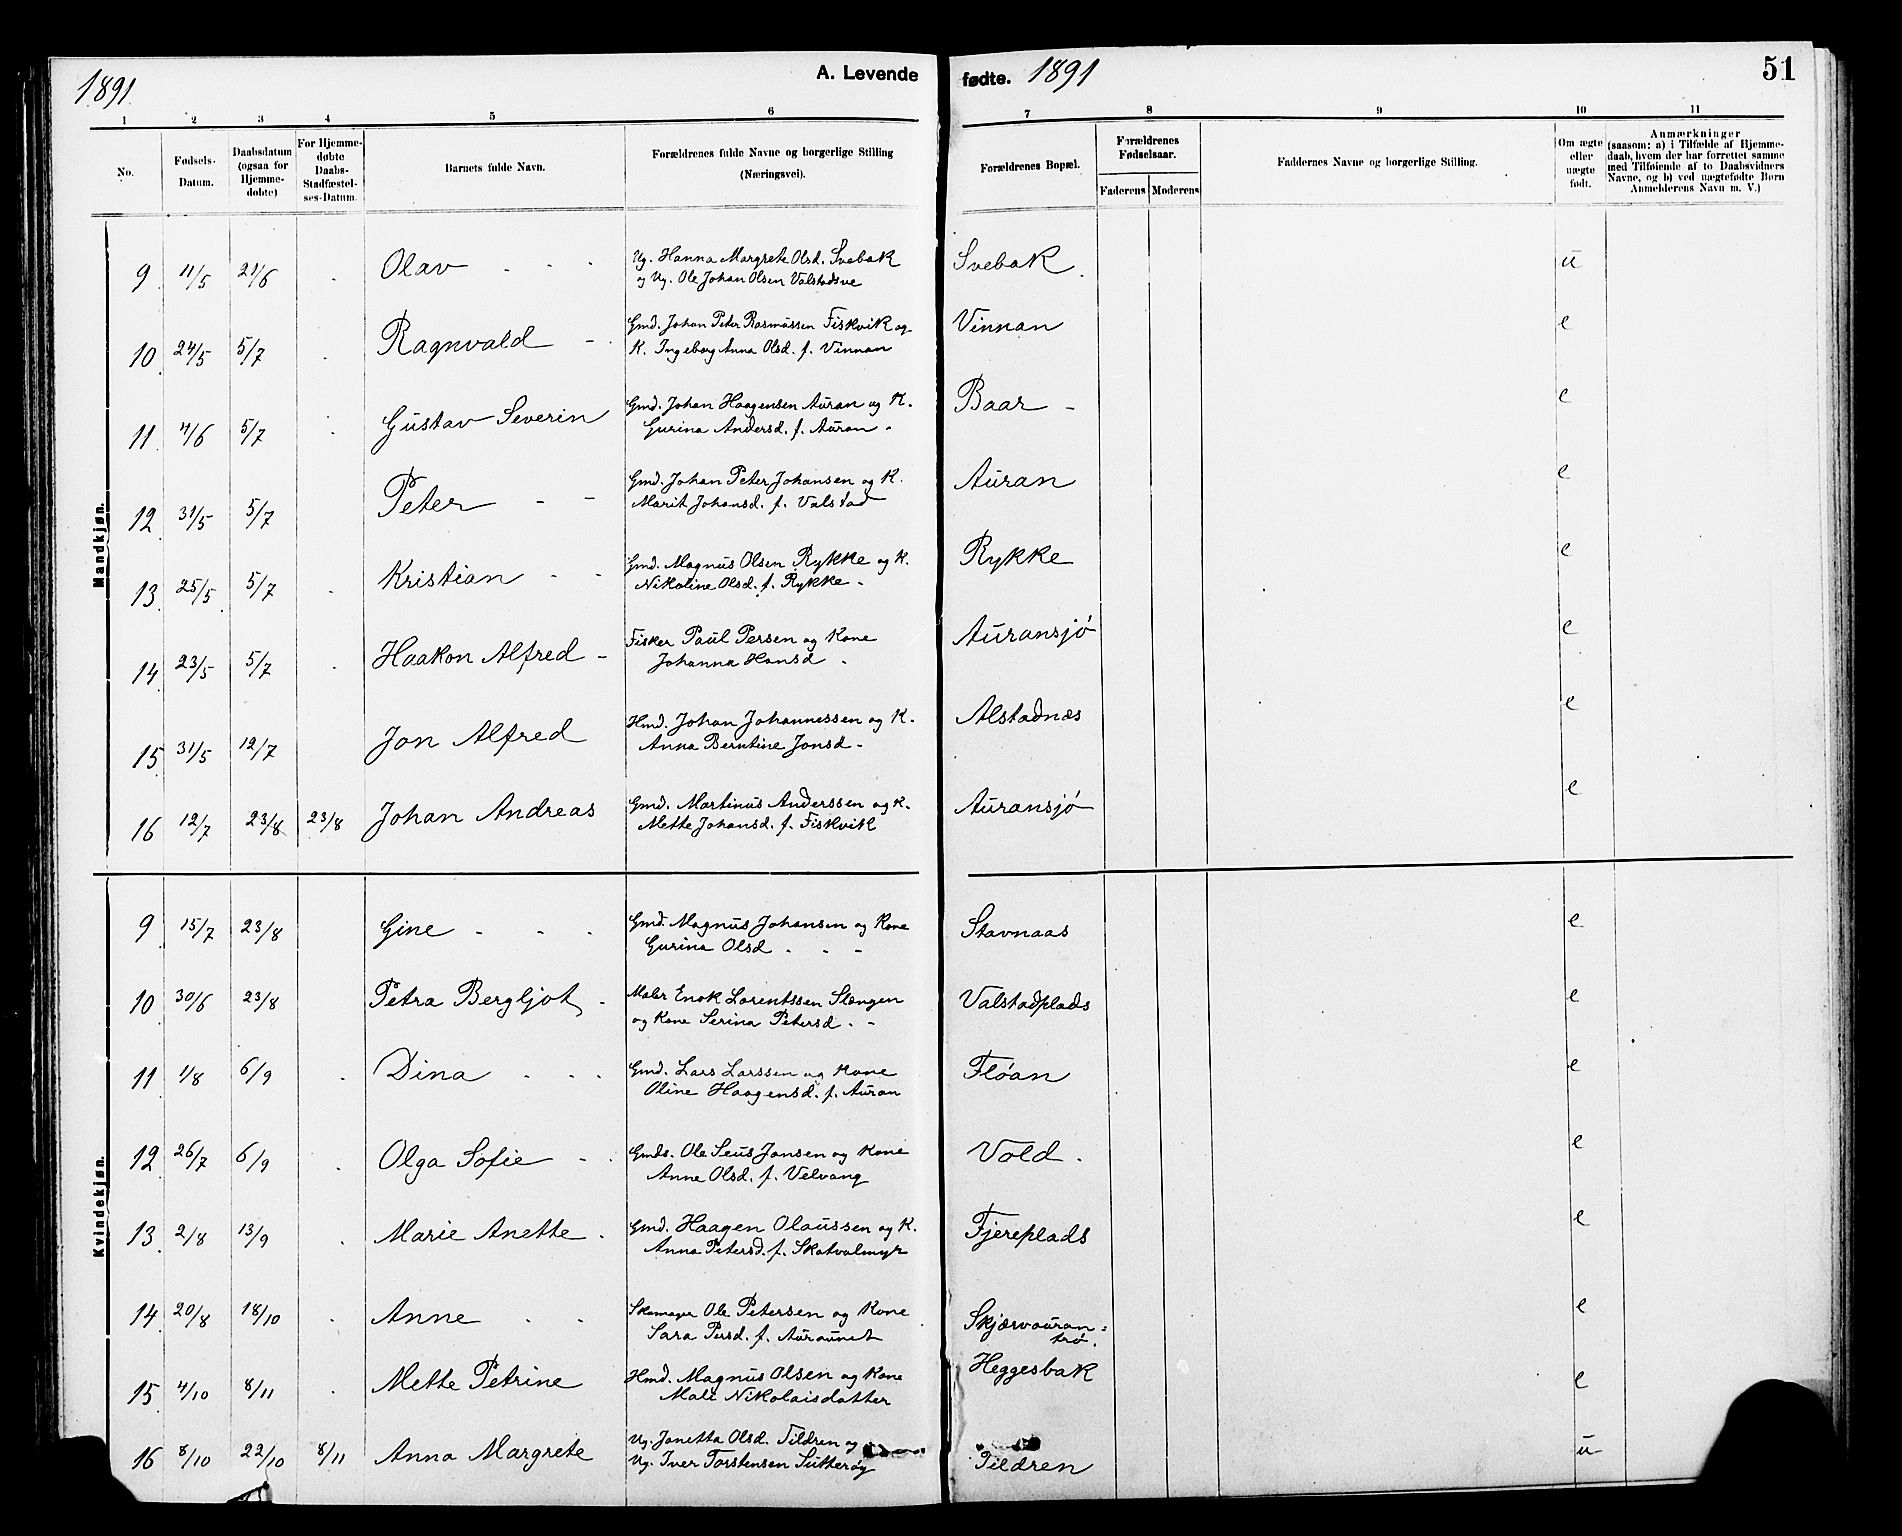 1891
A. Levende
fødte. 1891
51
1 2 3 4 5 6 7 8 9 10 11
No.
Fødsels-Datum.
Daabsdatum (ogsaa for Hjemme-døbte)
For Hjemme-døbte Daabs-Stadfæstel-ses-Datum.
Barnets fulde Navn.
Forældrenes fulde Navne og borgerlige Stilling (Næringsvei).
Forældrenes Bopæl.
Forældrenes Fødselsaar.
Faderens Moderens
Faddernes Navne og borgerlige Stilling.
Om ægte eller uægte født.
Anmærkninger (saasom: a) i Tilfælde af Hjemme-daab, hvem der har forrettet samme med Tilføiende af to Daabsvidners Navne, og b) ved uægtefødte Børn Anmelderens Navn m. V.)
Mandkjøn.
9 11/5 21/6 Olav Ug. Hanna Margrete Olsd. Svebak Svebak. u
og Ug. Ole Johan Olsen Valstadsve
10 24/5 5/7 Ragnvald Gmd. Johan Peter Rasmussen Fiskvik og Vinnan e
K. Ingeborg Anna Olsd. f. Vinnan
11 4/6 5/7 Gustav Severin Gmd. Johan Haagensen Auran og K. Baar e
Gurina Andersd. f. Auran
12 31/5 5/7 Peter Gmd. Johan Peter Johansen og K. Auran e
Marit Johansd. f. Valstad
13 25/5 5/7 Kristian Gmd. Magnus Olsen Rykke og K. Rykke e
Nikoline Olsd. f. Rykke
14 23/5 5/7 Haakon Alfred Fisker Paul Persen og Kone Auransjø e
Johanna Hansd
15 31/5 12/7 Jon Alfred Hmd. Johan Johannessen og K. Alstadnæs e
Anna Berntine Jonsd
16 12/7 23/8 23/8 Johan Andreas Gmd. Martinus Anderssen og K. Auransjø e
Mette Johansd. f. Fiskvik
Kvindekjøn.
9 15/7 23/8 Gine Gmd. Magnus Johansen og Kone Stavnaas e
Gurina Olsd
10 30/6 23/8 Petra Bergljot Maler Enok Lorentssen Slengen Valstadplads e
og Kone Serina Petersd.
11 1/8 6/9 Dina Gmd. Lars Larssen og Kone Fløan e
Oline Haagensd. f. Auran
12 26/7 6/9 Olga Sofie Gmds. Ole Jonsen og Kone Vold. e
Anne Olsd. f. Velvang
13 2/8 13/9 Marie Anette Gmd. Haagen Olaussen og K. Fjereplads e
Anna Petersd. f. Skatvalmyr
14 20/8 18/10 Anne Skomager Ole Petersen og Kone Skjærvauran= e
Sara Persd. f. Auraunet trø.
15 4/10 8/11 Mette Petrine Hmd. Magnus Olsen og Kone Heggesbak e
Mali Nikolaisdatter
16 8/10 22/10 8/11 Anna Margrete Ug. Janetta Olsd. Tildren og Tildren u
Ug. Iver Torstensen Sutterøy